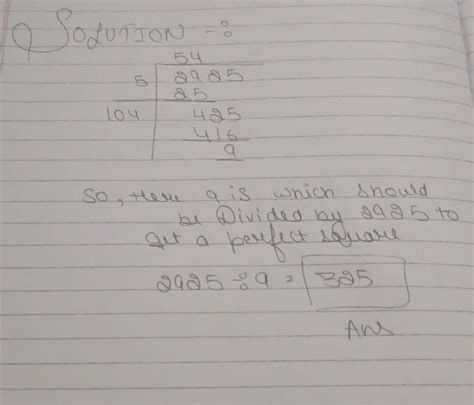 SOLUTION -:
54
5 2925
25
104 425
416
9
So, Here 9 is which should
be Divided by 2925 to
get a perfect square
2925 ÷ 9 = 325
Ans